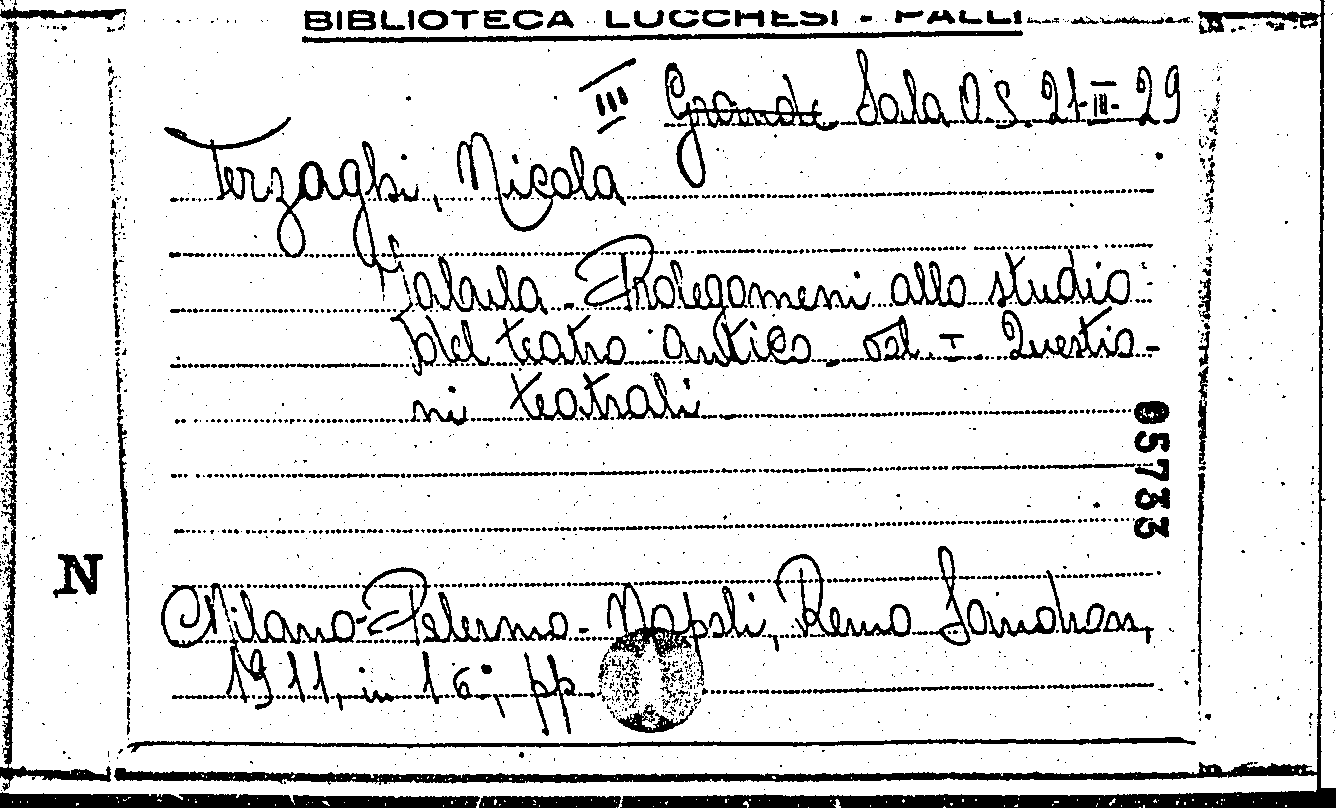 BIBLIOTECA LUCCHESI - PALLI
III Grande Sala O.S. 21-III-29
Terzaghi, Nicola
Fabula - Prolegomeni allo studio
del teatro antico - vol. I. Questio-
ni teatrali
05733
N
Milano-Palermo-Napoli, Remo Sandron,
1911, in 16°; pp